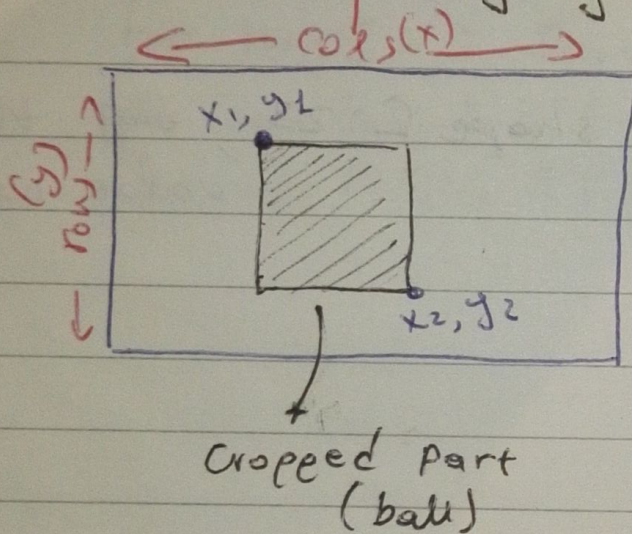 cols(x)
(y)
row
x1, y1
x2, y2
Cropped part
(ball)